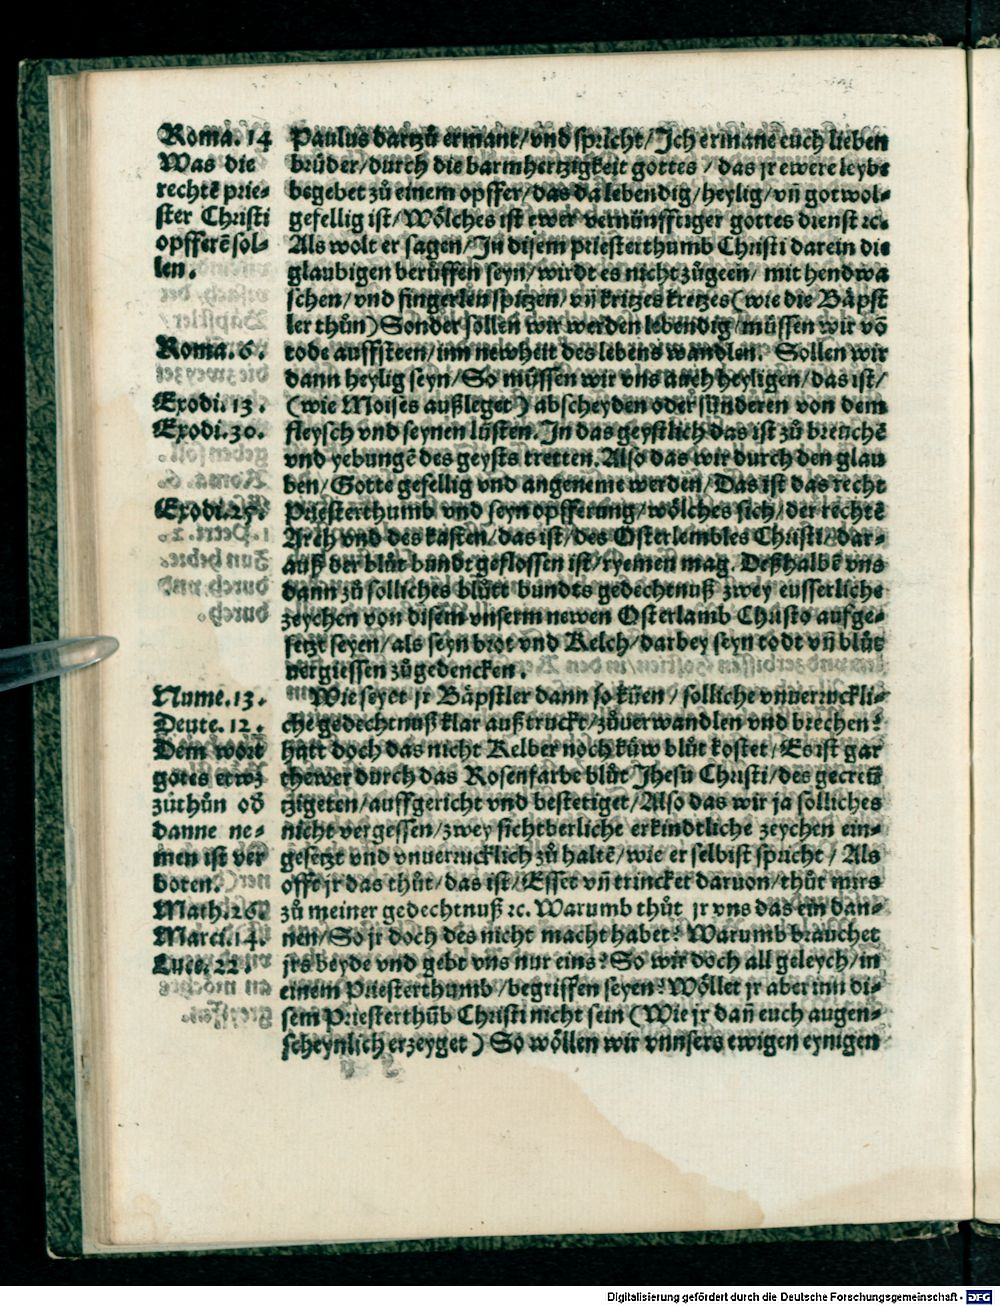 Roma. 14
Was die
rechtē prie-
ster Christi
opfferē sol-
len.
Roma. 6.
Exodi. 13.
Exodi. 30.
Exodi. 25.
Nume. 13.
Deute. 12.
Dem wort
gotes etwz
zůthůn oď
danne ne-
men ist ver
boten.
Math. 26.
Marci. 14.
Luce. 22.
Paulus dartzů ermant/ vnd spricht/ Ich ermane euch lieben
brüder/ durch die barmhertzigkeit gottes / das jr ewere leybe
begebet zů einem opffer/ das da lebendig/ heylig/ vn̄ gotwol-
gefellig ist/ Wölches ist ewer vernünfftiger gottes dienst ꝛc.
Als wolt er sagen/ In disem priesterthumb Christi darein die
glaubigen berüffen seyn/ wirdt es nicht zůgeen/ mit hend wa
schen/ vnd fingerlen spitzen/ vn̄ kritzes kretzes (wie die Bäpst
ler thůn) Sonder sollen wir werden lebendig/ müssen wir vō
tode auffsteen/ inn newheit des lebens wandlen. Sollen wir
dann heylig seyn/ So müssen wir vns auch heyligen/ das ist/
(wie Moises außleget) abscheyden oder sünderen von dem
fleysch vnd seynen lüsten. In das geystlich das ist zů breuchē
vnd yebungē des geysts tretten. Also das wir durch den glau
ben/ Gotte gefellig vnd angeneme werden/ Das ist das recht
Priesterthumb vnd seyn opfferung/ wölches sich/ der rechtē
Arch vnd des kasten/ das ist/ des Osterlembles Christi/ dar-
auß der blůt bundt geflossen ist/ ryemen mag. Deßhalbē vns
dann zů solliches blůtt bundts gedechtnuß zwey eusserliche
zeychen von disem vnserm newen Osterlamb Christo aufge-
setzt seyen/ als seyn brot vnd Kelch/ darbey seyn todt vn̄ blůt
vergiessen zůgedencken.
Wie seyet jr Bäpstler dann so küen / solliche vnuerruckli-
che gedechtnuß klar auß truckt/ zůuerwandlen vnd brechen?
hatt doch das nicht Kelber noch küw blůt kostet/ Es ist gar
thewer durch das Rosenfarbe blůt Jhesu Christi/ des gecreü
tzigeten/ auffgericht vnd bestetiget/ Also das wir ja solliches
nicht vergessen/ zwey sichtberliche erkindtliche zeychen ein-
gesetzt vnd vnuerrucklich zů haltē/ wie er selbist spricht / Als
offt jr das thůt/ das ist/ Esset vn̄ trincket daruon/ thůt mirs
zů meiner gedechtnuß ꝛc. Warumb thůt jr vns das ein dan-
nen/ So jr doch des nicht macht habet? Warumb brauchet
jrs beyde vnd gebt vns nur eins? So wir doch all geleych/ in
einem Priesterthumb / begriffen seyen? Wöllet jr aber inn di-
sem Priesterthūb Christi nicht sein (Wie jr dañ euch augen-
scheynlich erzeyget) So wöllen wir vnnsers ewigen eynigen
Digitalisierung gefördert durch die Deutsche Forschungsgemeinschaft - DFG